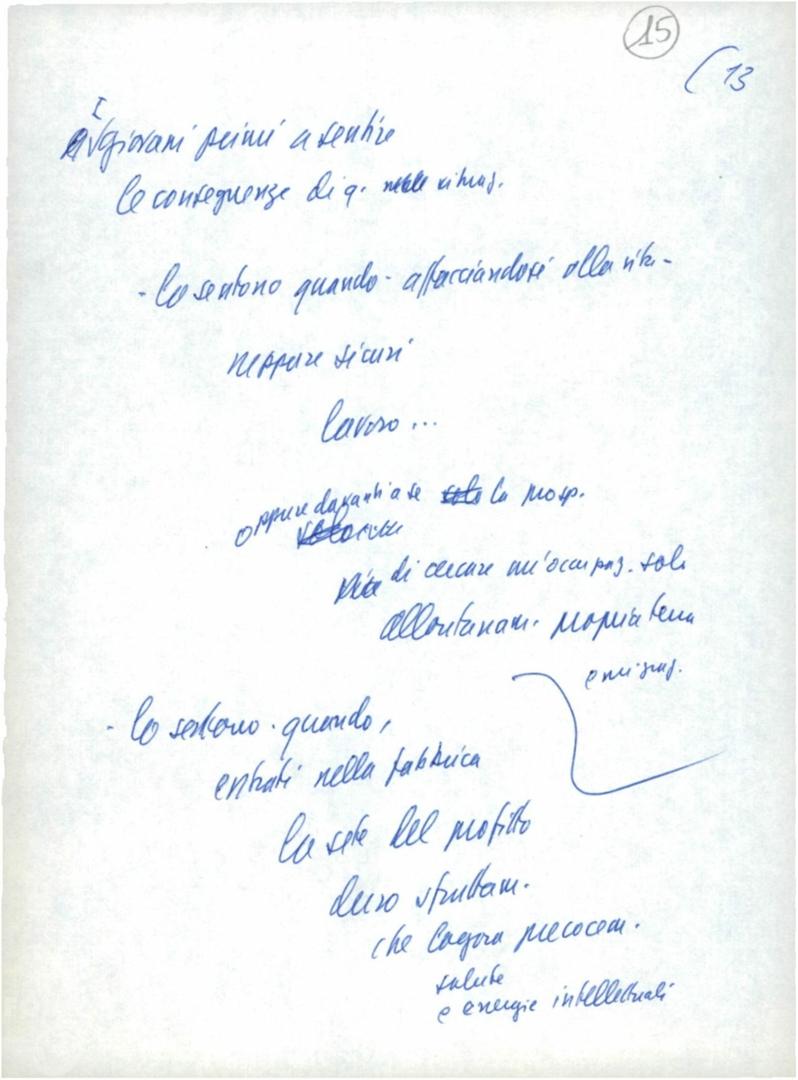 15
(13
I
giovani primi a sentire
le conseguenze di q. situaz.
- lo sentono quando - affacciandosi alla vita -
neppure sicuri
lavoro...
oppure davanti a se solo la prosp.
solo
di cercare un'occupaz. solo
allontanam. propria terra
emigraz.
- lo sentono - quando,
entrati nella fabbrica
la sete del profitto
duro sfruttam.
che logora precocem.
salute
e energie intellettuali